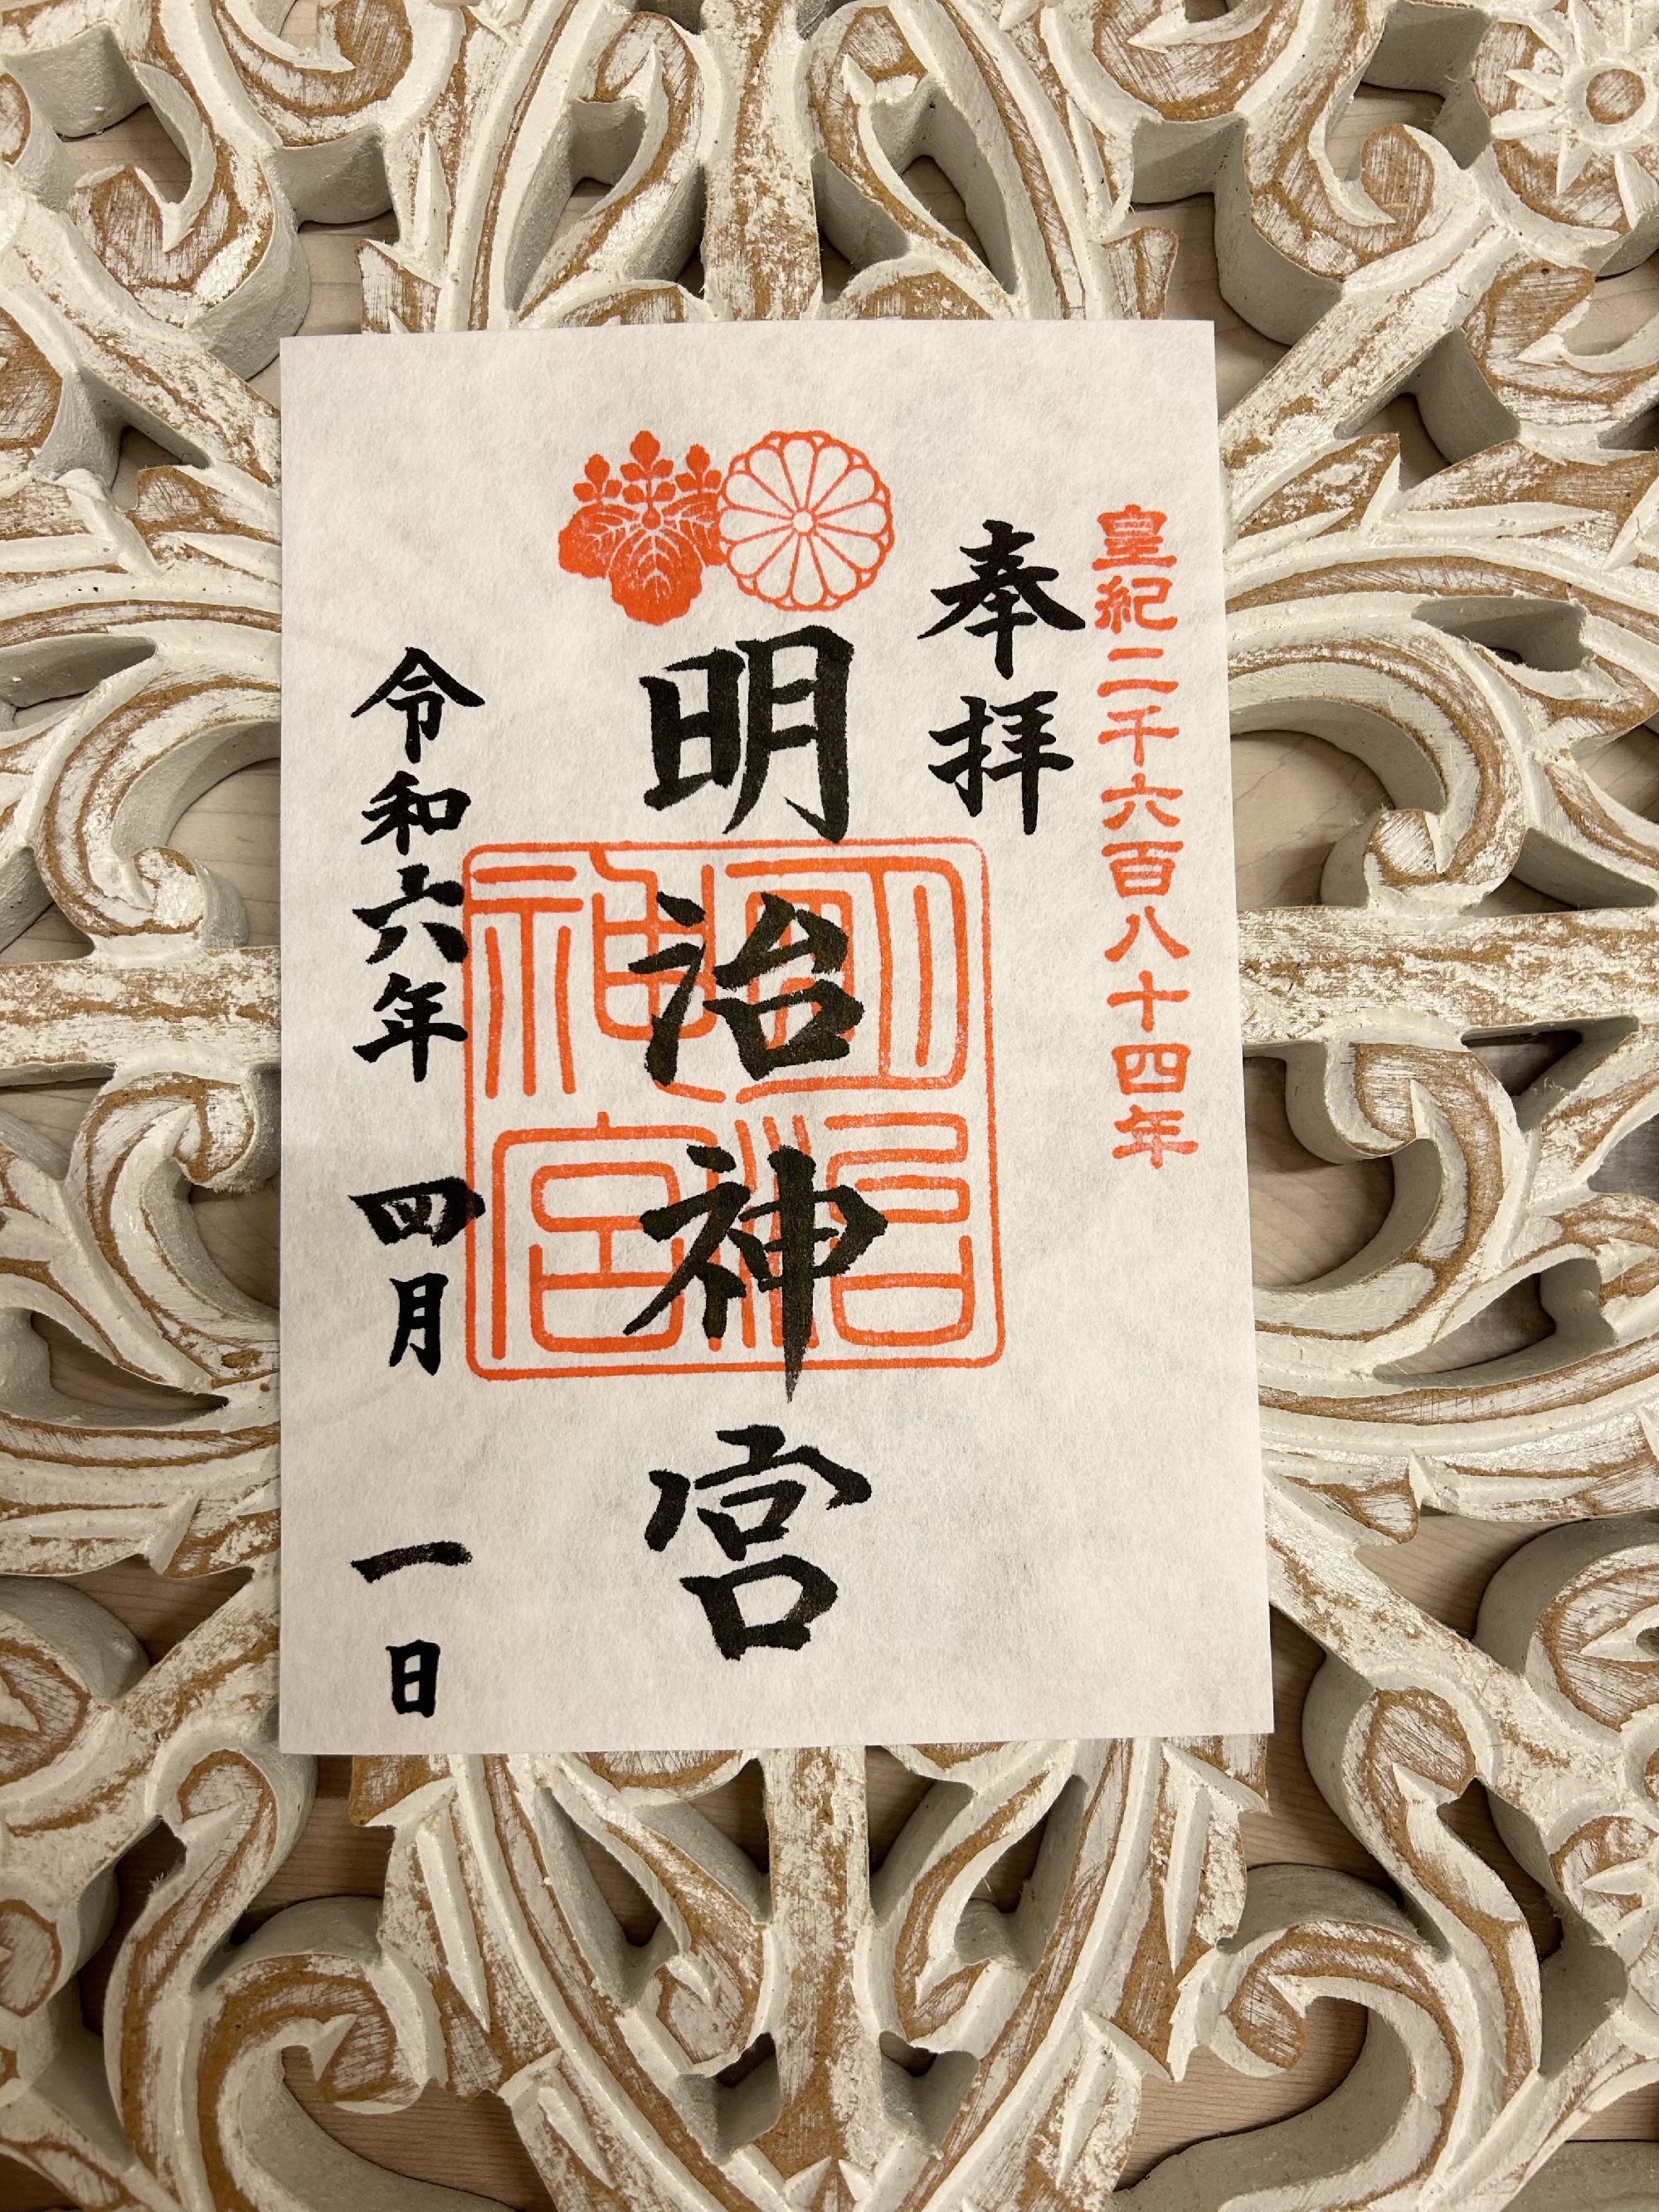 皇紀二千六百八十四年
奉拝
明治神宮
明治神宮
令和六年 四月 一日